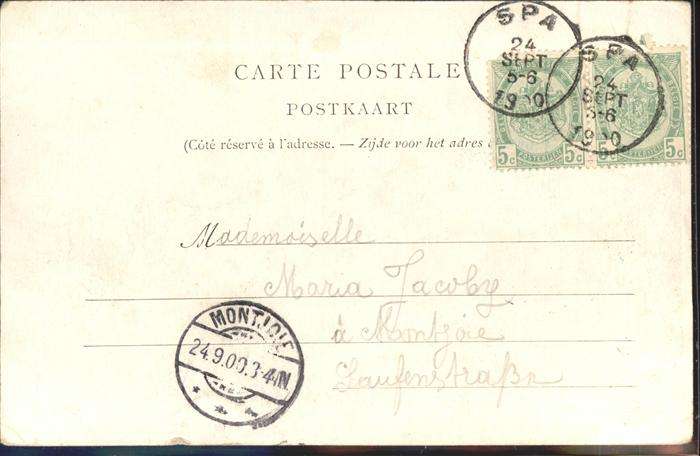 SPA
24
SEPT
5-6
1900
SPA
24
SEPT
5-6
1900
CARTE POSTALE
POSTKAART
(Côté réservé à l'adresse. — Zijde voor het adres
5c 5c 5c
Mademoiselle
Maria Jacoby
à Montjoie
Laufenstraße
MONTJOIE
24.9.00.3-4N